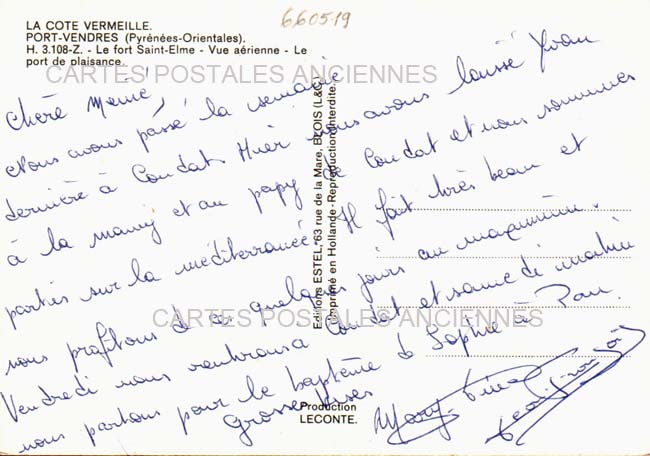 660519
LA COTE VERMEILLE.
PORT-VENDRES (Pyrénées-Orientales).
H. 3.108-Z. - Le fort Saint-Elme - Vue aérienne - Le
port de plaisance.
CARTES POSTALES ANCIENNES
Chère Mémé,
Nous avons passé la semaine
dernière à Condat. Hier nous avons laissé Yvan
à la mamy et au papy de Condat et nous sommes
partis sur la méditerranée. Il fait très beau et
nous profitons de ces quelques jours au maximum.
Vendredi nous rentrerons à Condat et samedi matin
nous partons pour le baptême de Sophie à Pau.
Grosses bises
Editions ESTEL, 63 rue de la Mare, BLOIS (L&C)
Imprimé en Hollande - Reproduction interdite.
CARTES POSTALES ANCIENNES
Production
LECONTE.